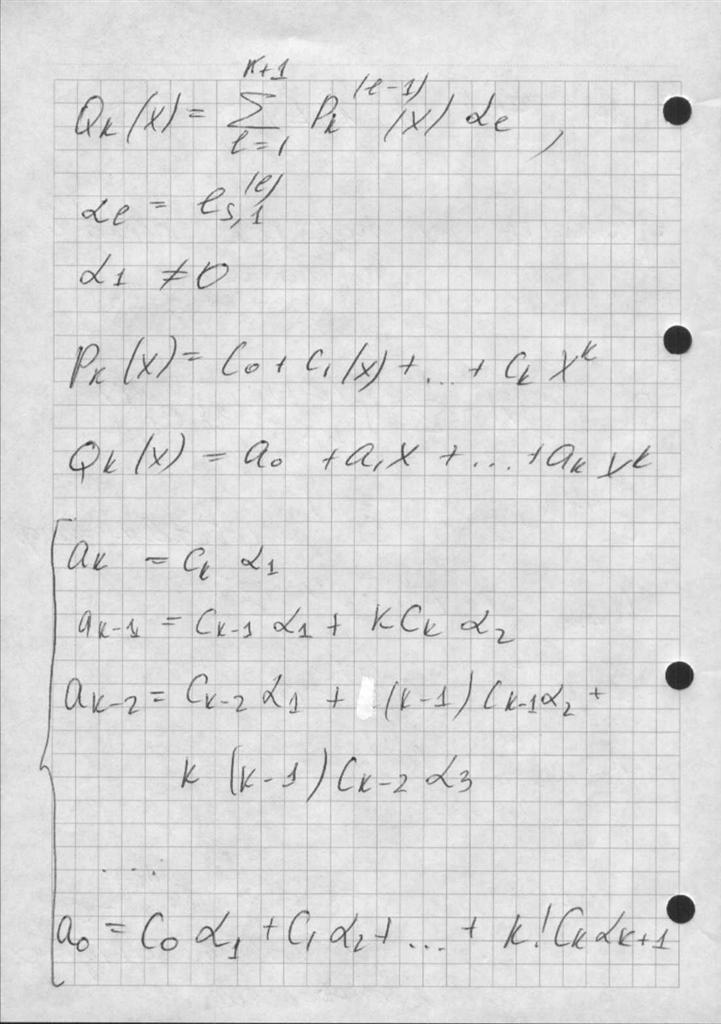 Q_k(x) = \sum_{ℓ=1}^{k+1} P_k^{(ℓ-1)}(x) α_ℓ ,
α_ℓ = ℓ_{s,1}^{(ℓ)}
α_1 ≠ 0
P_k(x) = C_0 + C_1(x) + ... + C_k x^k
Q_k(x) = a_0 + a_1 x + ... + a_k x^k
a_k = C_k α_1
a_{k-1} = C_{k-1} α_1 + k C_k α_2
a_{k-2} = C_{k-2} α_1 + (k-1) C_{k-1} α_2 +
k (k-1) C_{k-2} α_3
.....
a_0 = C_0 α_1 + C_1 α_2 + ... + k! C_k α_{k+1}